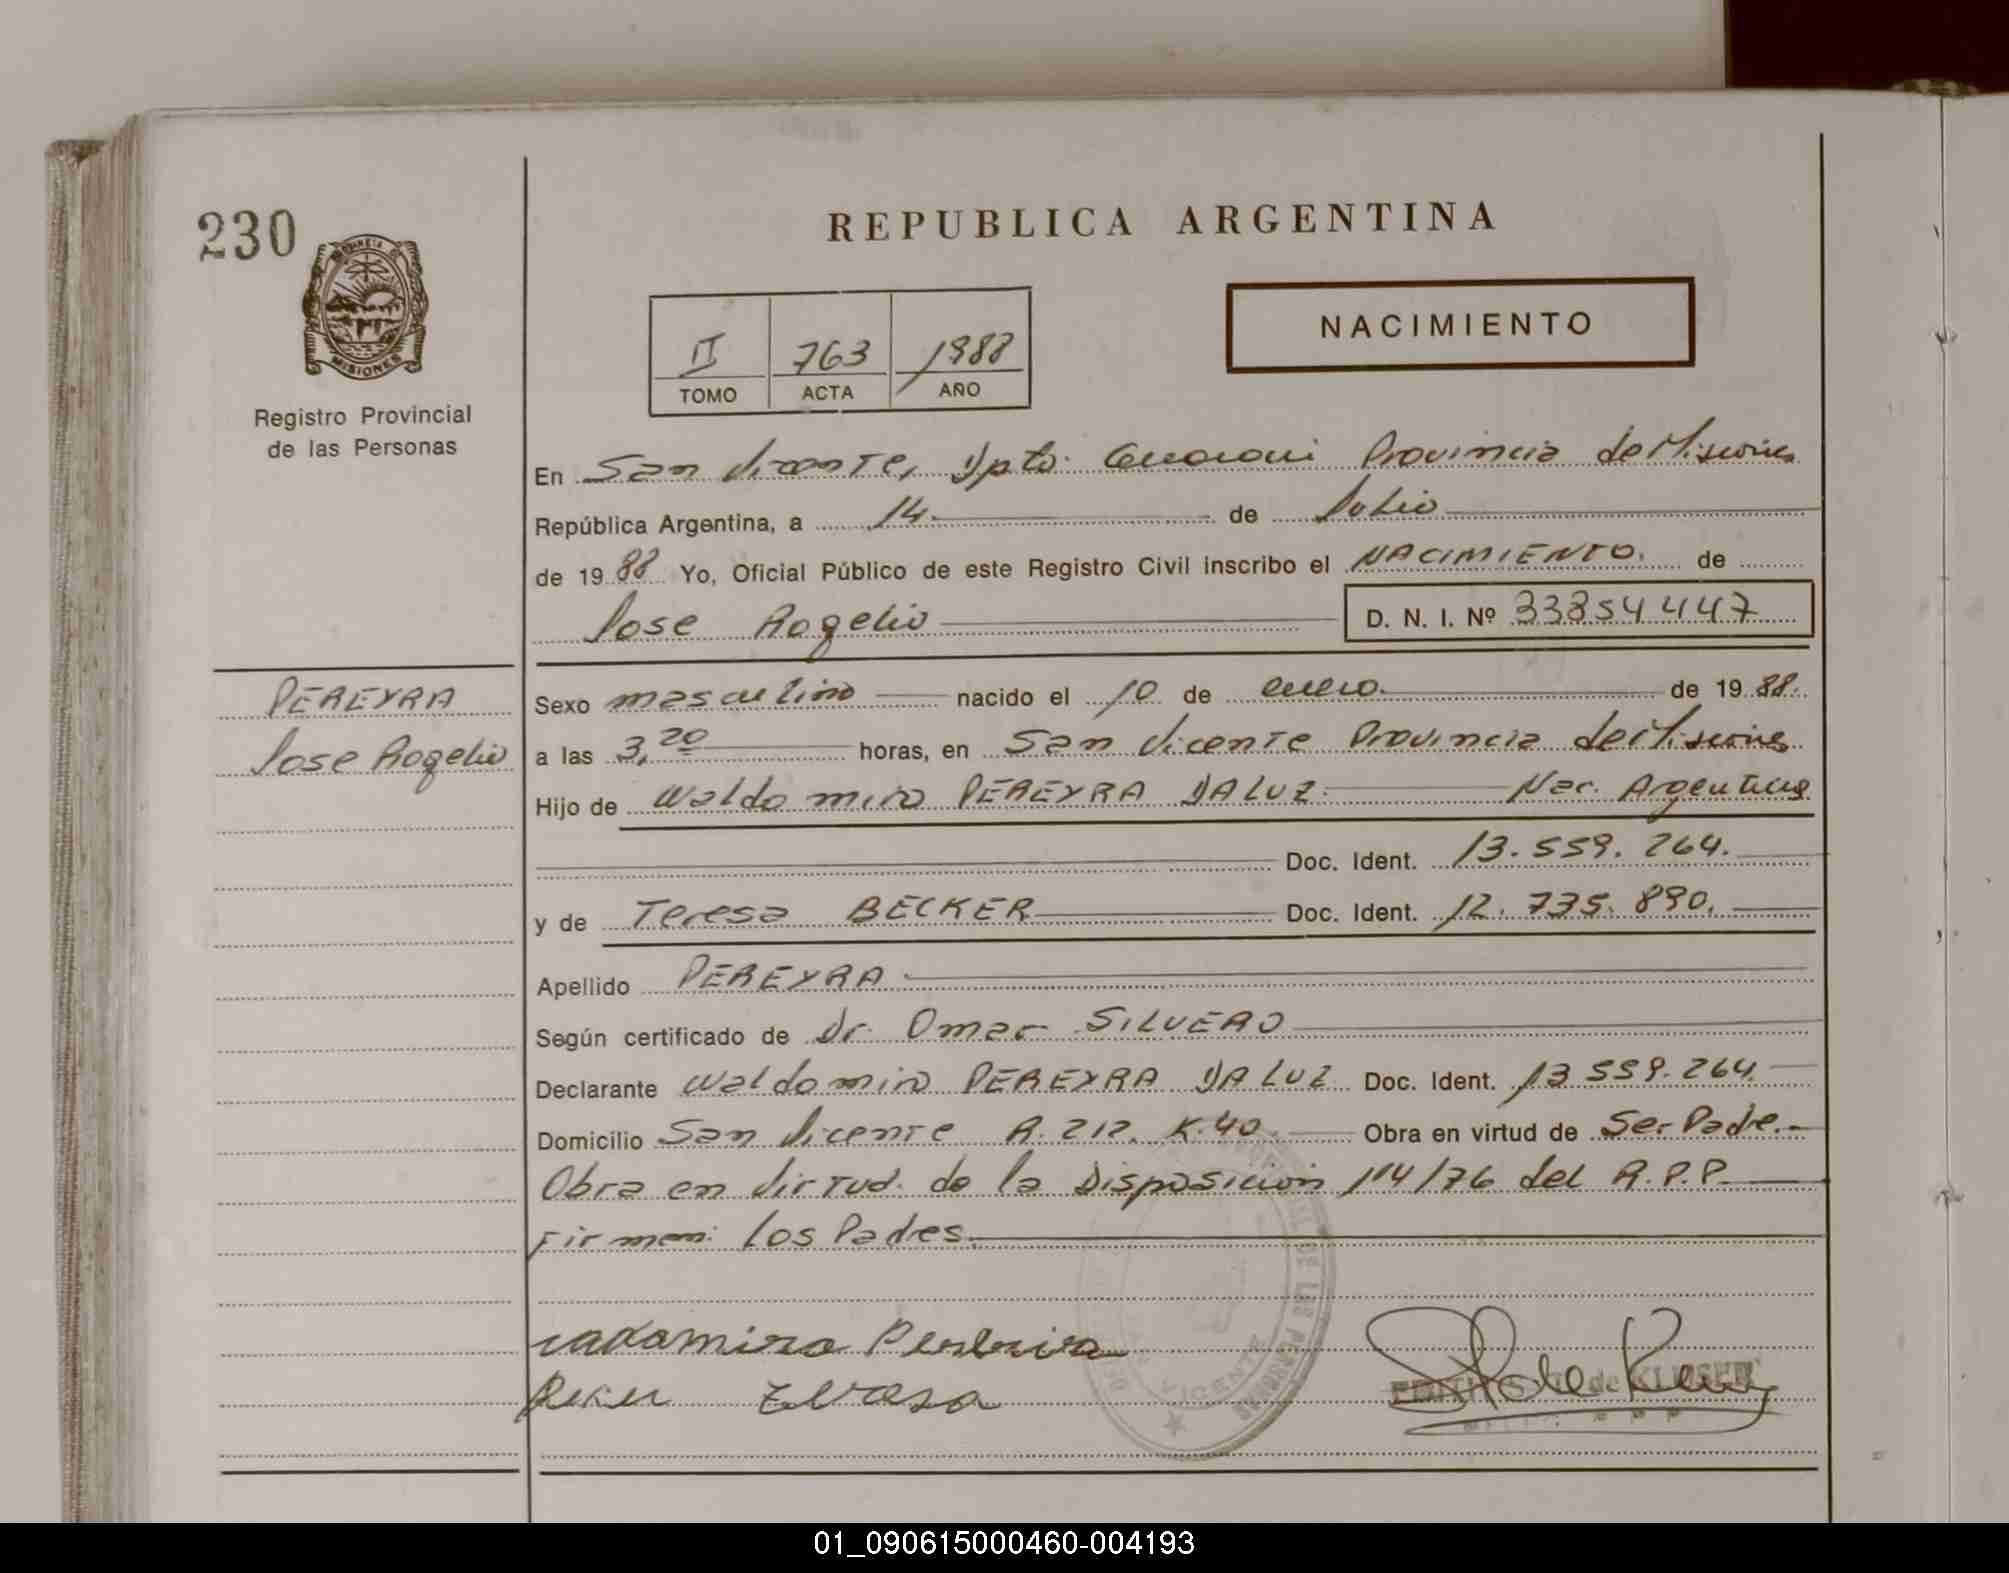 230
REPUBLICA ARGENTINA
PROVINCIA
MISIONES
Registro Provincial
de las Personas
NACIMIENTO
II 763 1988
TOMO ACTA AÑO
En San Vicente, Dpto. Guarani Provincia de Misiones
República Argentina, a 14 de Julio
de 1988 Yo, Oficial Público de este Registro Civil inscribo el NACIMIENTO. de
Jose Rogelio D. N. I. Nº 33854447
PEREYRA
Jose Rogelio
Sexo masculino nacido el 10 de enero de 1988.
a las 3,20 horas, en San Vicente Provincia de Misiones
Hijo de Waldomiro PEREYRA DALUZ. Nac. Argentina
Doc. Ident. 13.559.264.
y de Teresa BECKER Doc. Ident. 12.735.890.
Apellido PEREYRA
Según certificado de Dr. Omar SILVERO
Declarante Waldomiro PEREYRA DALUZ Doc. Ident. 13559.264.
Domicilio San Vicente R.212. K.40. Obra en virtud de Ser Padre.
Obra en Virtud de la Disposicion 114/76 del R.P.P.
Firman: los Padres.
VICENTE
DE LAS PERSONAS
EDITH de
01_090615000460-004193